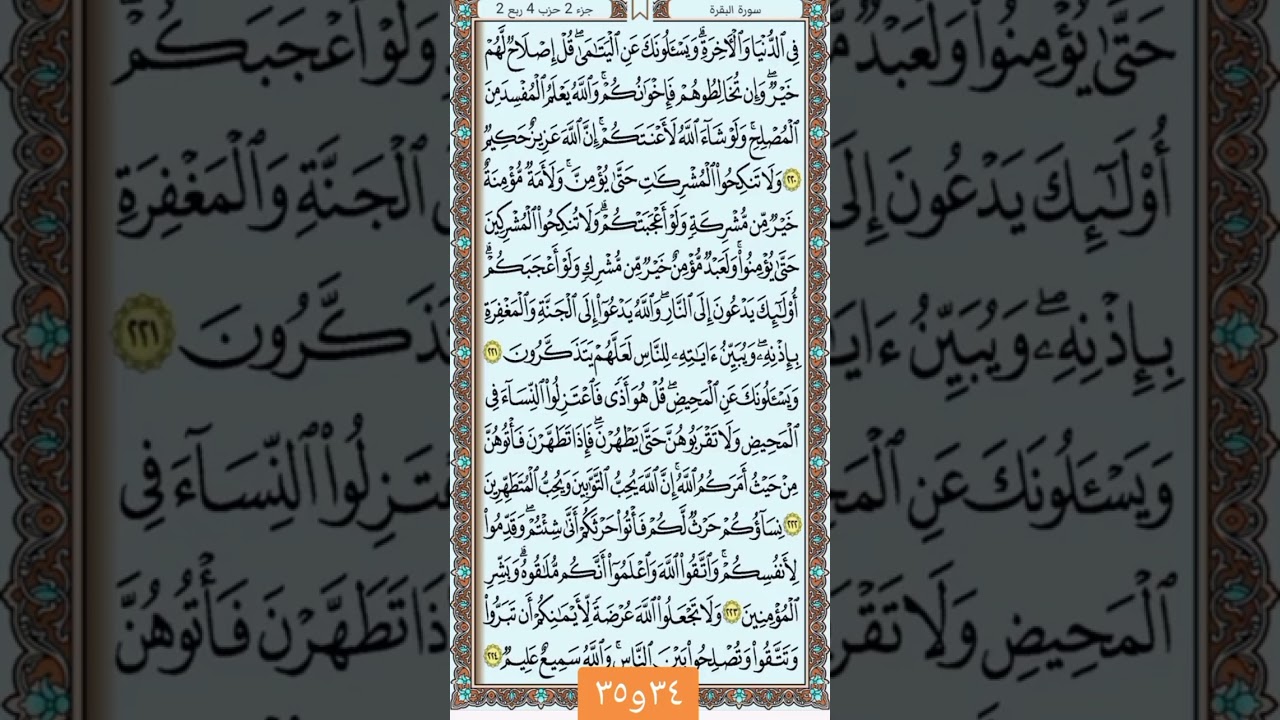 سورة البقرة
جزء 2 حزب 4 ربع 2
فِي ٱلدُّنۡيَا وَٱلۡأٓخِرَةِۗ وَيَسۡـَٔلُونَكَ عَنِ ٱلۡيَتَٰمَىٰۖ قُلۡ إِصۡلَاحٞ لَّهُمۡ
خَيۡرٞۖ وَإِن تُخَالِطُوهُمۡ فَإِخۡوَٰنُكُمۡۚ وَٱللَّهُ يَعۡلَمُ ٱلۡمُفۡسِدَ مِنَ
ٱلۡمُصۡلِحِۚ وَلَوۡ شَآءَ ٱللَّهُ لَأَعۡنَتَكُمۡۚ إِنَّ ٱللَّهَ عَزِيزٌ حَكِيمٞ
٢٢٠ وَلَا تَنكِحُواْ ٱلۡمُشۡرِكَٰتِ حَتَّىٰ يُؤۡمِنَّۚ وَلَأَمَةٞ مُّؤۡمِنَةٌ
خَيۡرٞ مِّن مُّشۡرِكَةٖ وَلَوۡ أَعۡجَبَتۡكُمۡۗ وَلَا تُنكِحُواْ ٱلۡمُشۡرِكِينَ
حَتَّىٰ يُؤۡمِنُواْۚ وَلَعَبۡدٞ مُّؤۡمِنٌ خَيۡرٞ مِّن مُّشۡرِكٖ وَلَوۡ أَعۡجَبَكُمۡۗ
أُوْلَٰٓئِكَ يَدۡعُونَ إِلَى ٱلنَّارِۖ وَٱللَّهُ يَدۡعُوٓاْ إِلَى ٱلۡجَنَّةِ وَٱلۡمَغۡفِرَةِ
بِإِذۡنِهِۦۖ وَيُبَيِّنُ ءَايَٰتِهِۦ لِلنَّاسِ لَعَلَّهُمۡ يَتَذَكَّرُونَ ٢٢١
وَيَسۡـَٔلُونَكَ عَنِ ٱلۡمَحِيضِۖ قُلۡ هُوَ أَذٗى فَٱعۡتَزِلُواْ ٱلنِّسَآءَ فِي
ٱلۡمَحِيضِ وَلَا تَقۡرَبُوهُنَّ حَتَّىٰ يَطۡهُرۡنَۖ فَإِذَا تَطَهَّرۡنَ فَأۡتُوهُنَّ
مِنۡ حَيۡثُ أَمَرَكُمُ ٱللَّهُۚ إِنَّ ٱللَّهَ يُحِبُّ ٱلتَّوَّٰبِينَ وَيُحِبُّ ٱلۡمُتَطَهِّرِينَ
٢٢٢ نِسَآؤُكُمۡ حَرۡثٞ لَّكُمۡ فَأۡتُواْ حَرۡثَكُمۡ أَنَّىٰ شِئۡتُمۡۖ وَقَدِّمُواْ
لِأَنفُسِكُمۡۚ وَٱتَّقُواْ ٱللَّهَ وَٱعۡلَمُوٓاْ أَنَّكُم مُّلَٰقُوهُۗ وَبَشِّرِ
ٱلۡمُؤۡمِنِينَ ٢٢٣ وَلَا تَجۡعَلُواْ ٱللَّهَ عُرۡضَةٗ لِّأَيۡمَٰنِكُمۡ أَن تَبَرُّواْ
وَتَتَّقُواْ وَتُصۡلِحُواْ بَيۡنَ ٱلنَّاسِۚ وَٱللَّهُ سَمِيعٌ عَلِيمٞ ٢٢٤
٣٤و٣٥